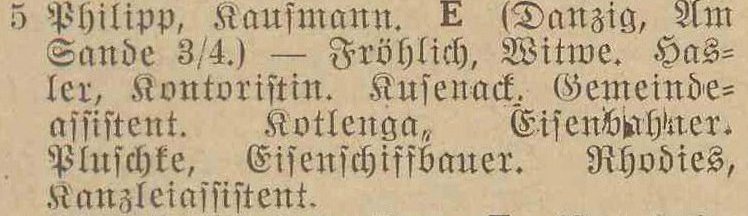 5 Philipp, Kaufmann. E (Danzig, Am
Sande 3/4.) — Fröhlich, Witwe. Has=
ler, Kontoristin. Kusenack, Gemeinde=
assistent. Kotlenga, Eisenbahner.
Pluschke, Eisenschiffbauer. Rhodies,
Kanzleiassistent.